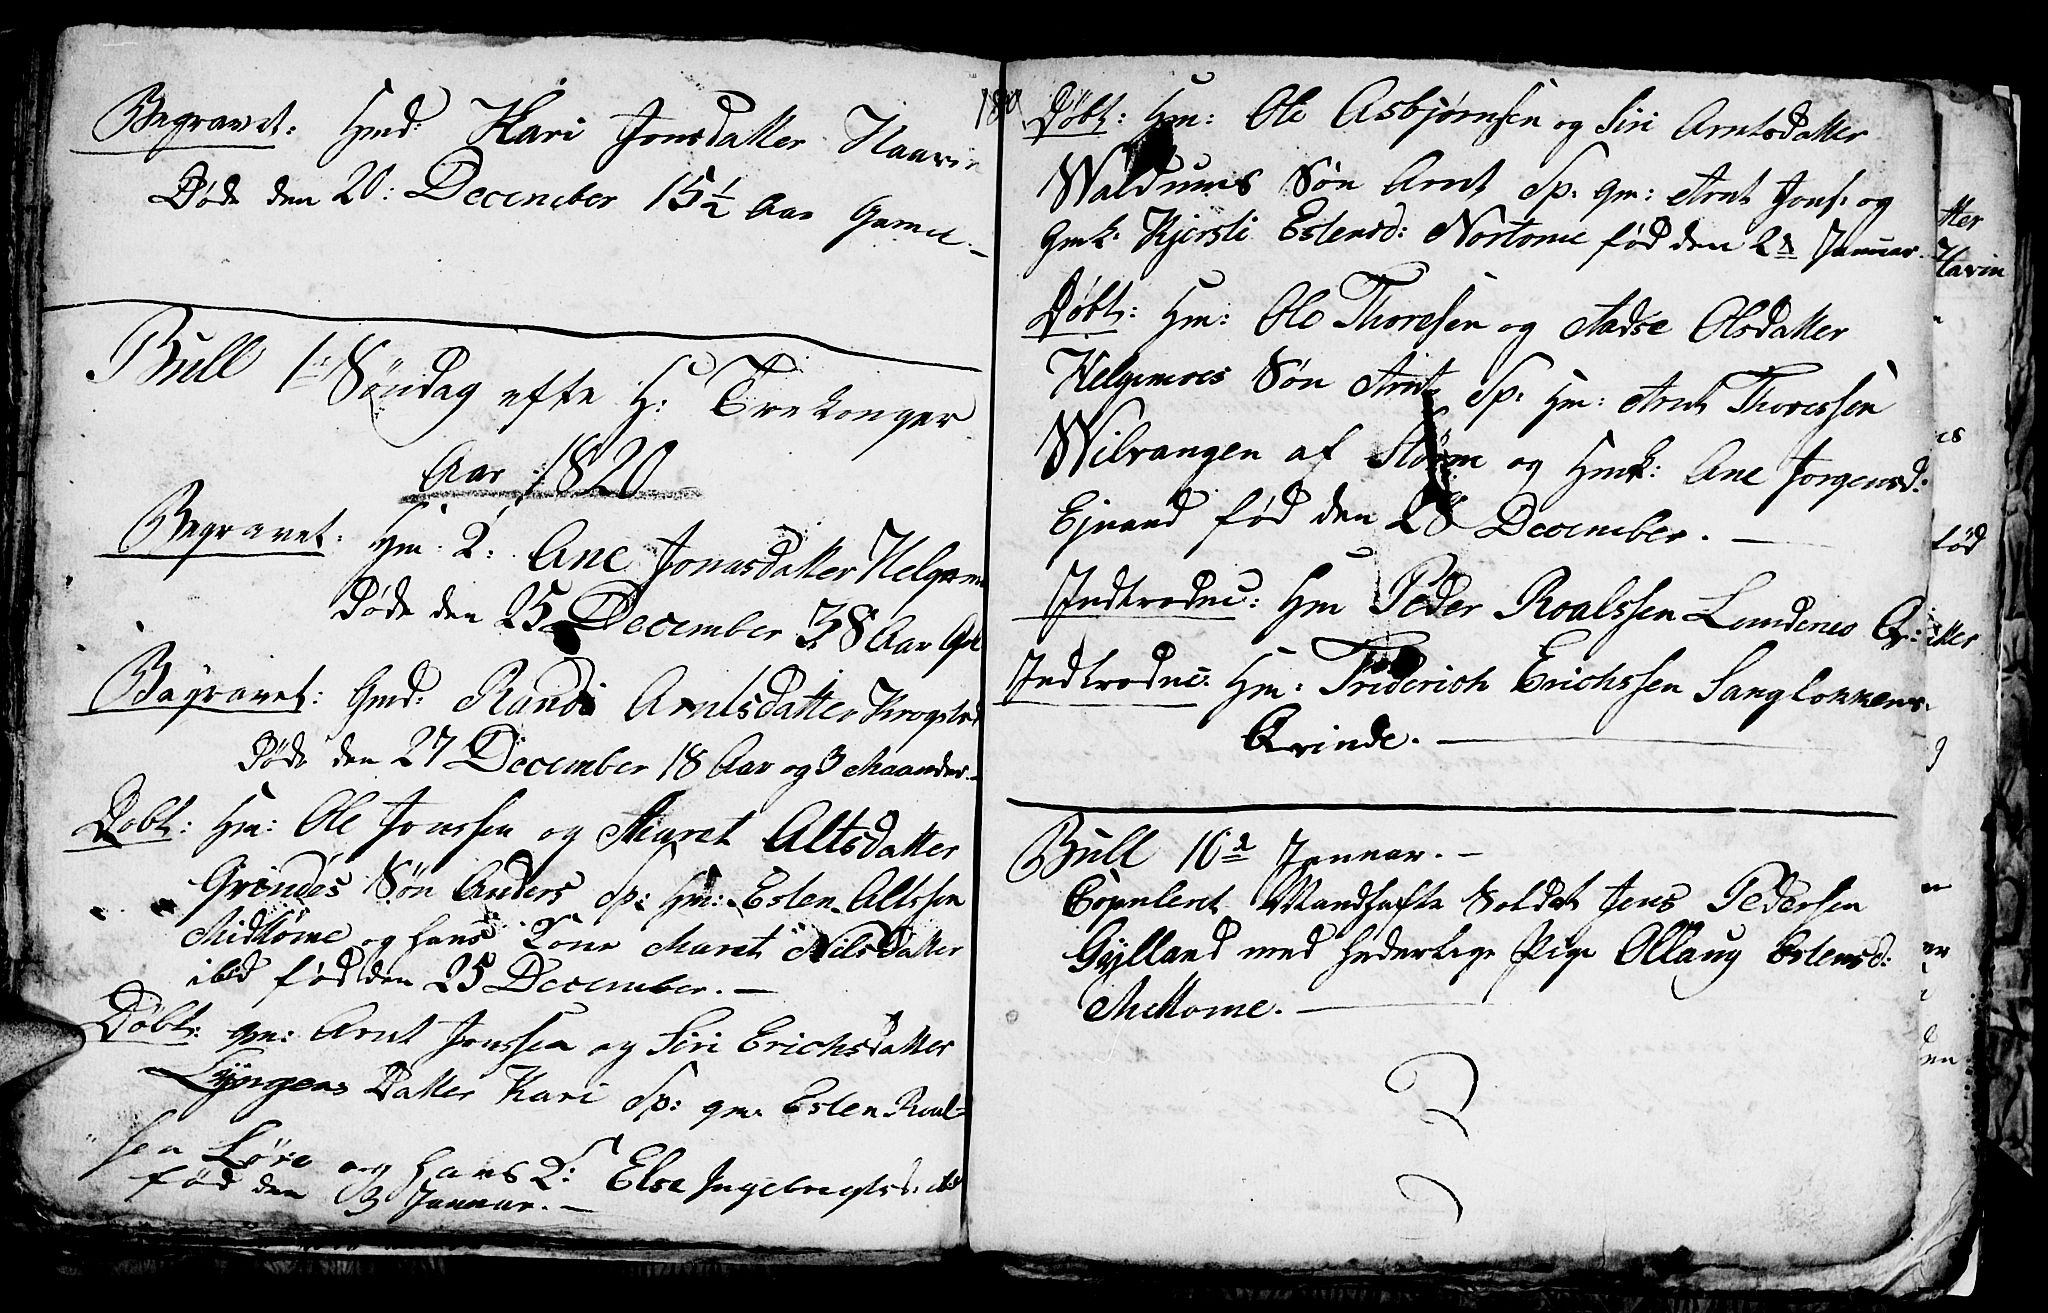 Begravet: Hmd: Kari Jonsdatter Haavin
Døde den 20: December 15½ Aar Gamel.
Bull 1ste Søndag efter H: Trekonger
Aar 1820
Begravet: Hm: Q: Ane Jonasdatter Helgem
Døde den 25 December 38 Aar Gl
Begravet: Gmd: Randi Arntsdatter Krogstad
Døde den 27 December 18 Aar og 3 Maaneder.
Døbt: Hm: Ole Jonssen og Maret Altsdatter
Grindes Søn Anders Sp: Hm: Esten Altssen
Midtome og hans Kone Maret Nilsdatter
ibid født den 25 December.
Døbt: gm: Arnt Jonssen og Siri Erichsdatter
Lyngens Datter Kari Sp: gm: Esten Roal-
sen Løre og hans Q: Else Ingebregtsd: ibd
født den 3 Januar.
180
Døbt: Hm: Ole Asbjørnsen og Siri Arntsdatter
Waldums Søn Arnt Sp: gm: Arnt Jons: og
Gmk: Kjersti Estensd: Nortome fød den 2n Januar.
Døbt: Hm: Ole Thoresen og Aadse Olsdatter
Helgemoes Søn Arnt Sp: Hm: Arnt Thoressen
Wilvangen af Støren og Hmk: Ane Jorgensd:
Ejnand fød den 28 December.
Indtroduc: Hm Peder Roalssen Lundenes Qv:
Indtroduc: Hm: Friderich Erichssen Sanglokkens
Qvinde.
Bull 16de Januar.
Copuleret Mandhafte Soldat Jens Pedersen
Gylland med hederlige Pige Ollaug Estensd:
Mettome.
tter
Havin
fød
tter
er
en